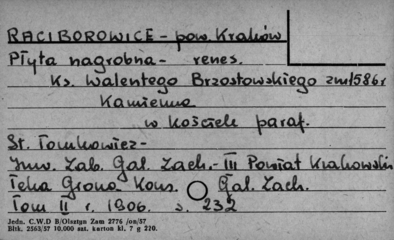 RACIBOROWICE - pow. Kraków
Płyta nagrobna - renes.
Ks. Walentego Brzostowskiego zm1586r
Kamienna
w kościele paraf.
St. Tomkowicz -
Inw. Zab. Gal. Zach. - III Powiat Krakowski
Teka Grona Kons. Gal. Zach.
Tom II r. 1906. s. 232
Jedn. C.W.D B/Olsztyn Zam 2776 /on/57
Bltk. 2563/57 10.000 szt. karton kl. 7 g 220.